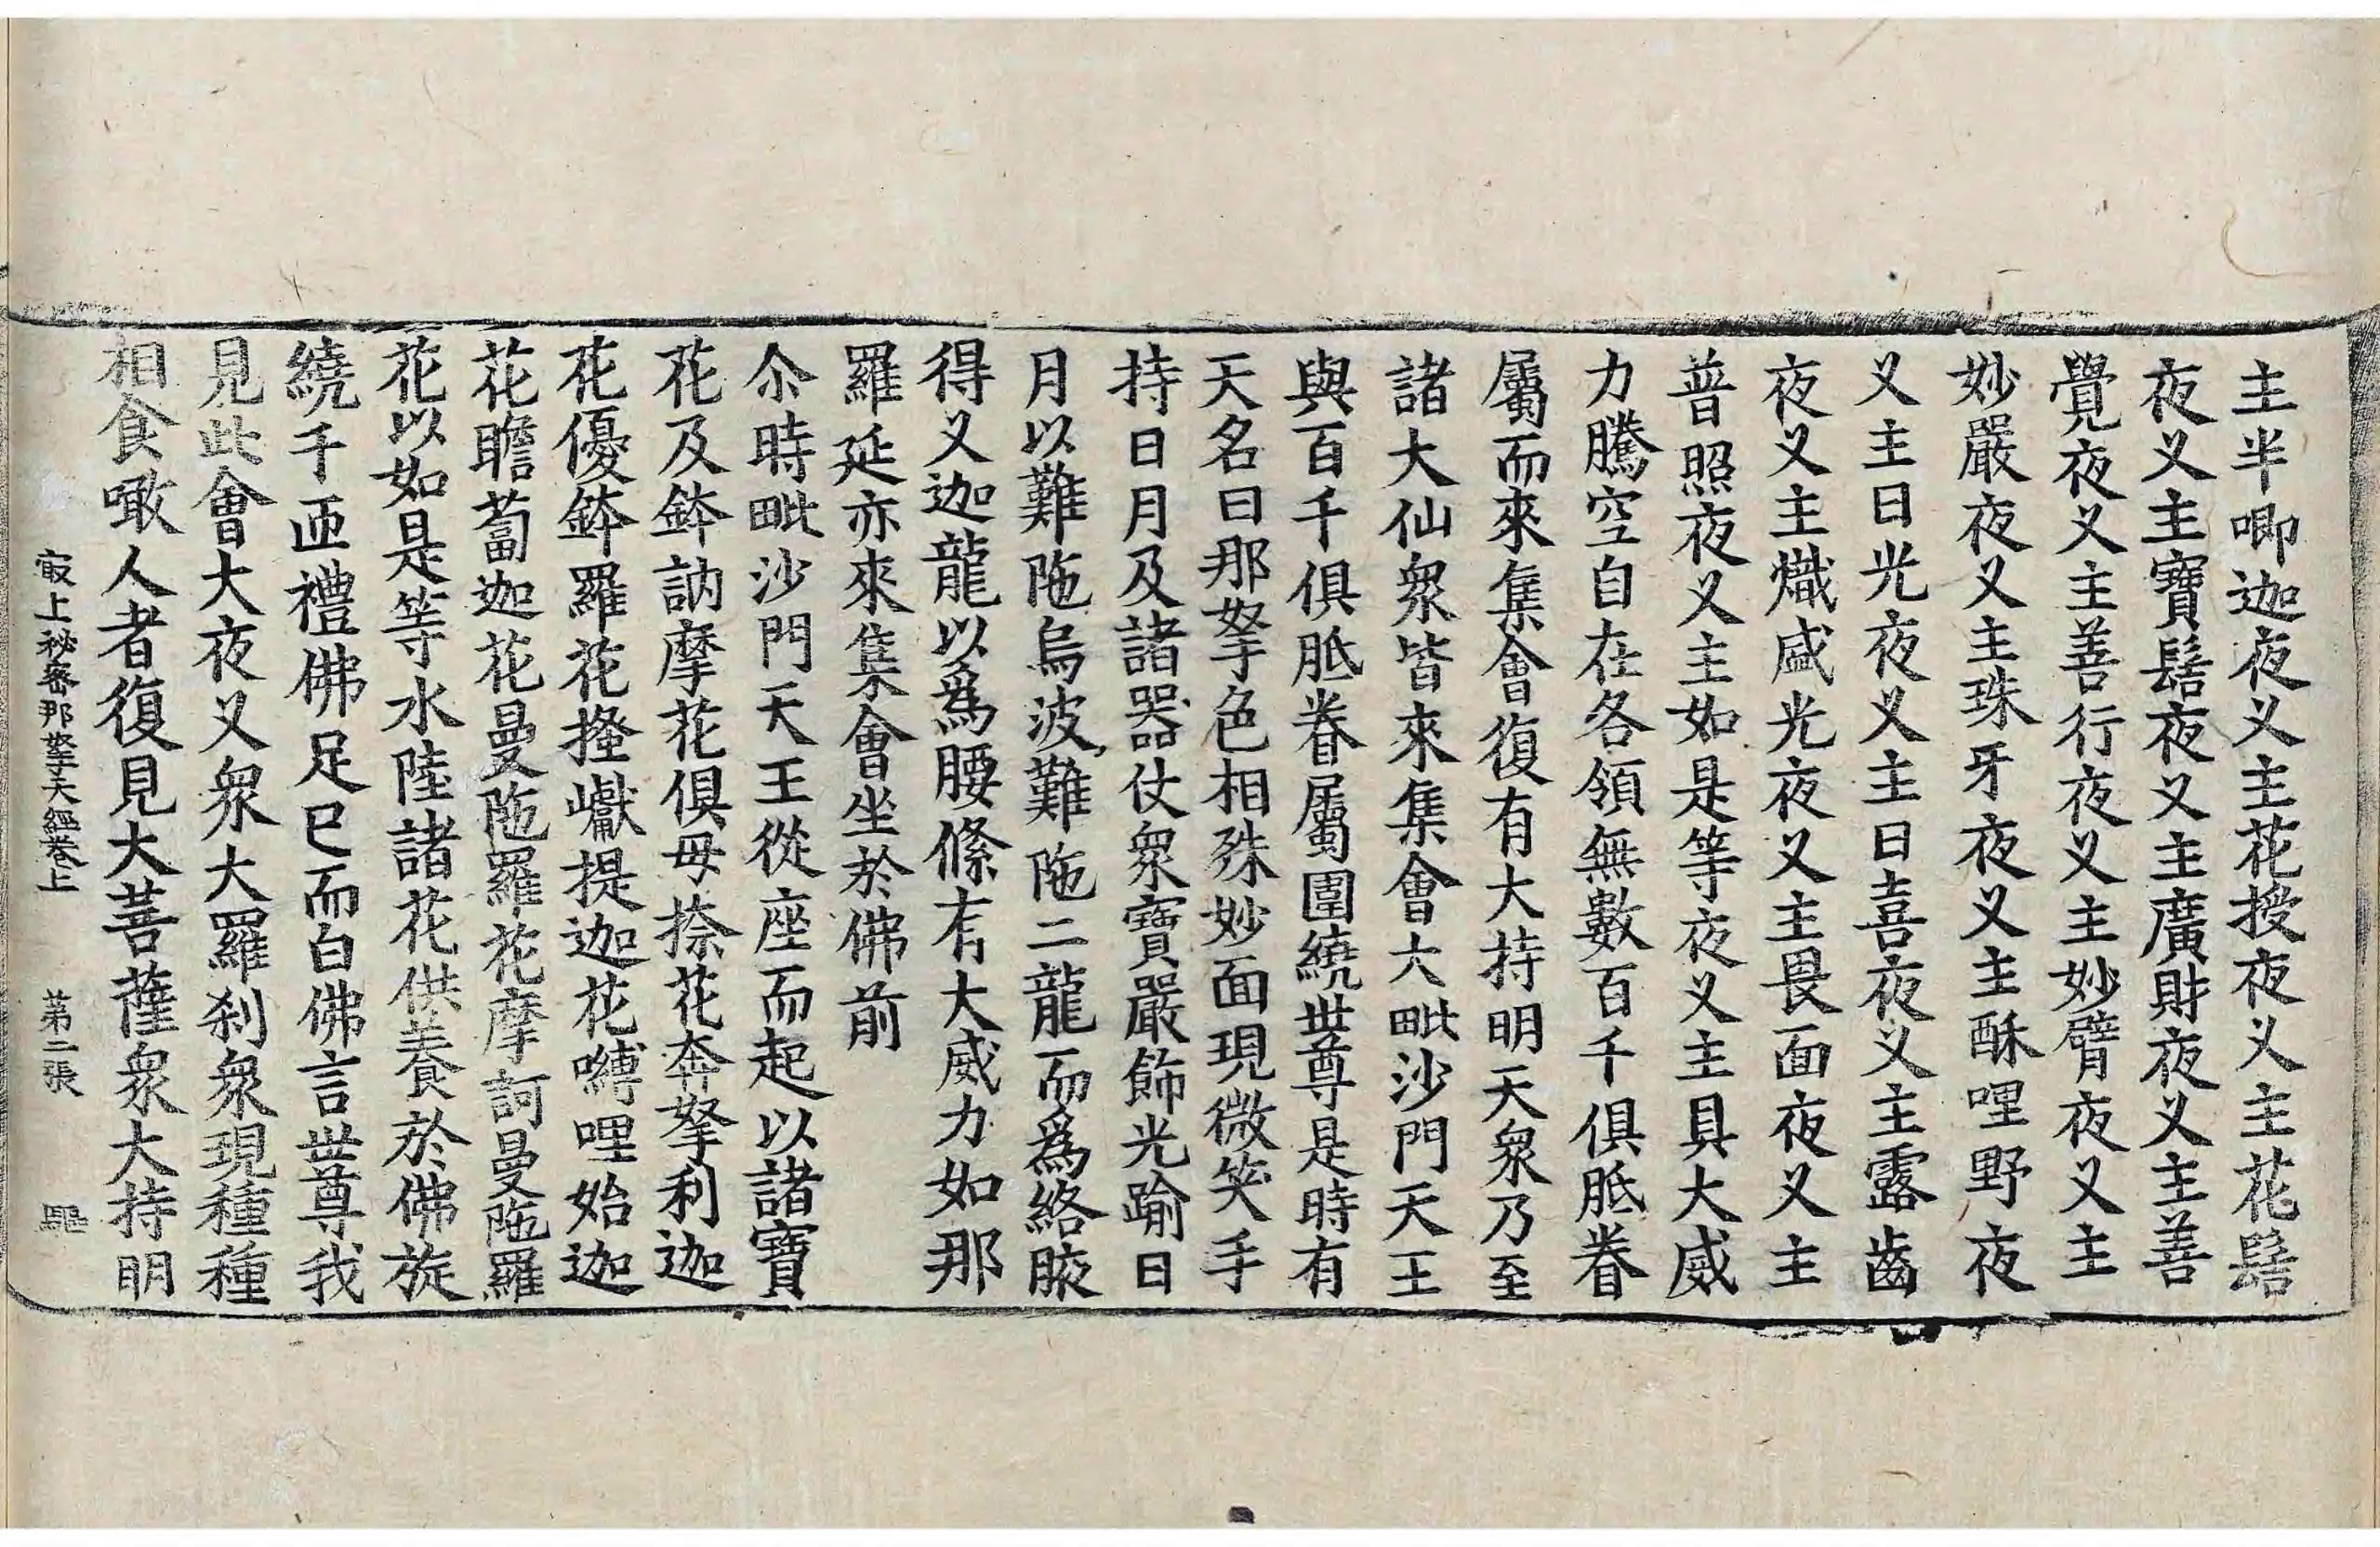 主半唧迦夜叉主花授夜叉主花髻
夜叉主寶髻夜叉主廣財夜叉主善
覺夜叉主善行夜叉主妙臂夜叉主
妙嚴夜叉主珠牙夜叉主酥哩野夜
叉主日光夜叉主日喜夜叉主露齒
夜叉主熾盛光夜叉主畏面夜叉主
普照夜叉主如是等夜叉主具大威
力騰空自在各領無數百千俱胝眷
屬而來集會復有大持明天衆乃至
諸大仙衆皆來集會六毗沙門天王
與百千俱胝眷屬圍繞世尊是時有
天名曰那拏色相殊妙面現微笑手
持日月及諸器仗衆寶嚴飾光踰日
月以難陁烏波難陁二龍而爲絡腋
得叉迦龍以爲腰絛有大威力如那
羅延亦來集會坐於佛前
尒時毗沙門天王從座而起以諸寶
花及鉢訥摩花俱毋捺花奔拏利迦
花優鉢羅花㨶巘提迦花嚩哩始迦
花瞻蔔迦花曼陁羅花摩訶曼陁羅
花以如是等水陸諸花供養於佛旋
繞千匝禮佛足已而白佛言世尊我
見此會大夜叉衆大羅刹衆現種種
相食噉人者復見大菩薩衆大持明
最上秘密那拏天經卷上 第二張 驅